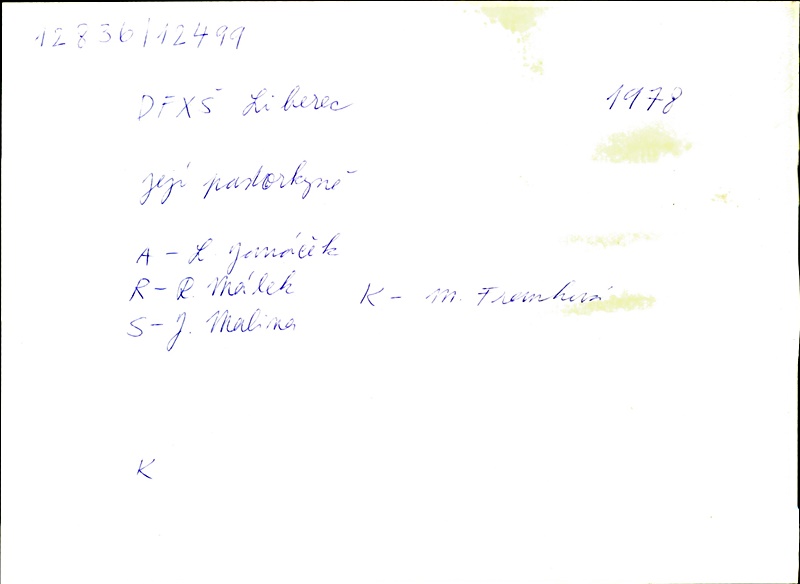 12836/12499
DFXŠ Liberec 1978
její pastorkyně
A - L Janáček
R - R. Málek K - M. Franková
S - J. Malina
K